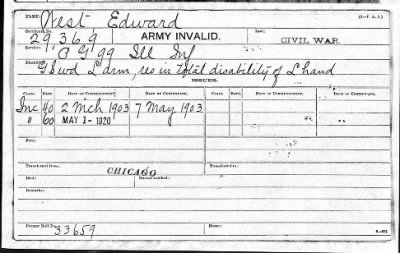 NAME: West Edward (3—P. A. I.)
Certificate No. 29,369 ARMY INVALID. Law: CIVIL WAR.
Service: G 99 Ill Inf
Disability: G S wd L arm, res in total disability of L hand
CLASS. RATE. DATE OF COMMENCEMENT. DATE OF CERTIFICATE. CLASS. RATE. DATE OF COMMENCEMENT. DATE OF CERTIFICATE.
Inc 40 2 Mch 1903 7 May 1903
" 60 MAY 1- 1920
Fees:
Transferred From: CHICAGO
Died:
Remarks:
Former Roll No. 33659 Home: